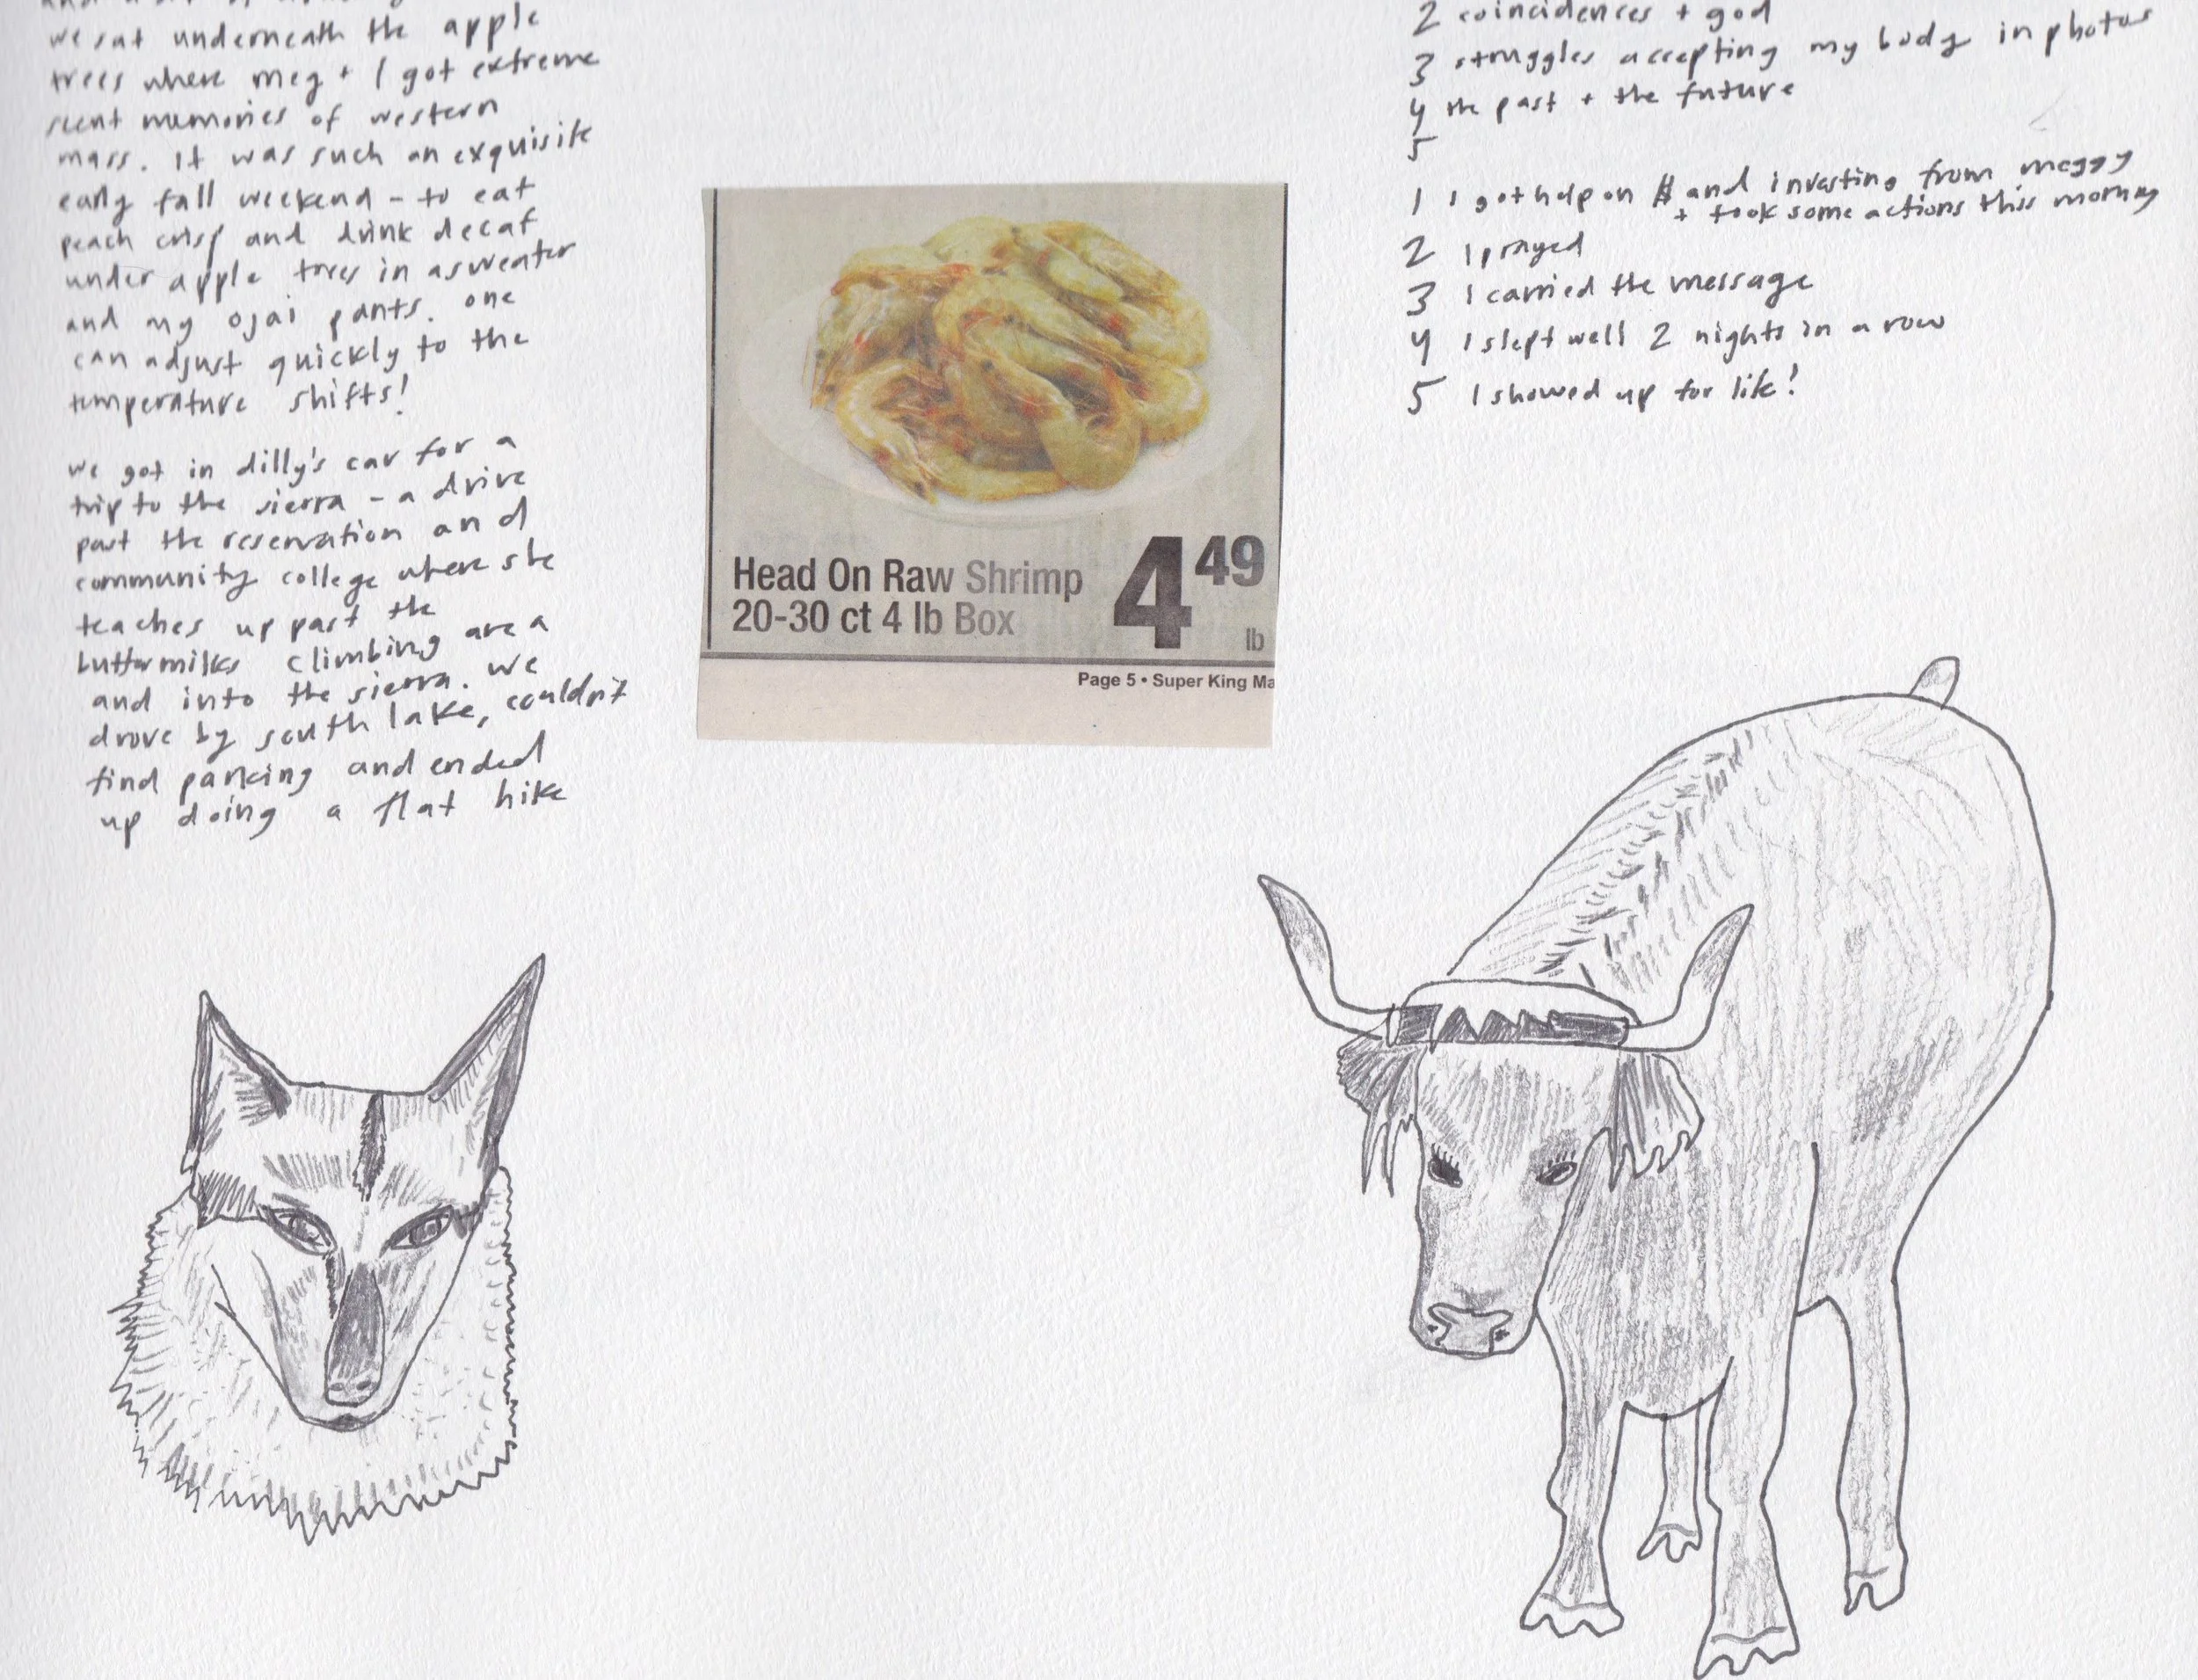 we sat underneath the apple
trees where meg + I got extreme
scent memories of western
mass. It was such an exquisite
early fall weekend - to eat
peach crisp and drink decaf
under apple trees in a sweater
and my ojai pants. one
can adjust quickly to the
temperature shifts!
we got in dilly's car for a
trip to the sierra - a drive
past the reservation and
community college where she
teaches up past the
buttermilks climbing area
and into the sierra. we
drove by south lake, couldn't
find parking and ended
up doing a flat hike
Head On Raw Shrimp
20-30 ct 4 lb Box
4 49
lb
Page 5 • Super King Ma
2 coincidences + god
3 struggles accepting my body in photos
4 the past + the future
5
1 I got help on $ and investing from meggy
+ took some actions this morning
2 I prayed
3 I carried the message
4 I slept well 2 nights in a row
5 I showed up for life!